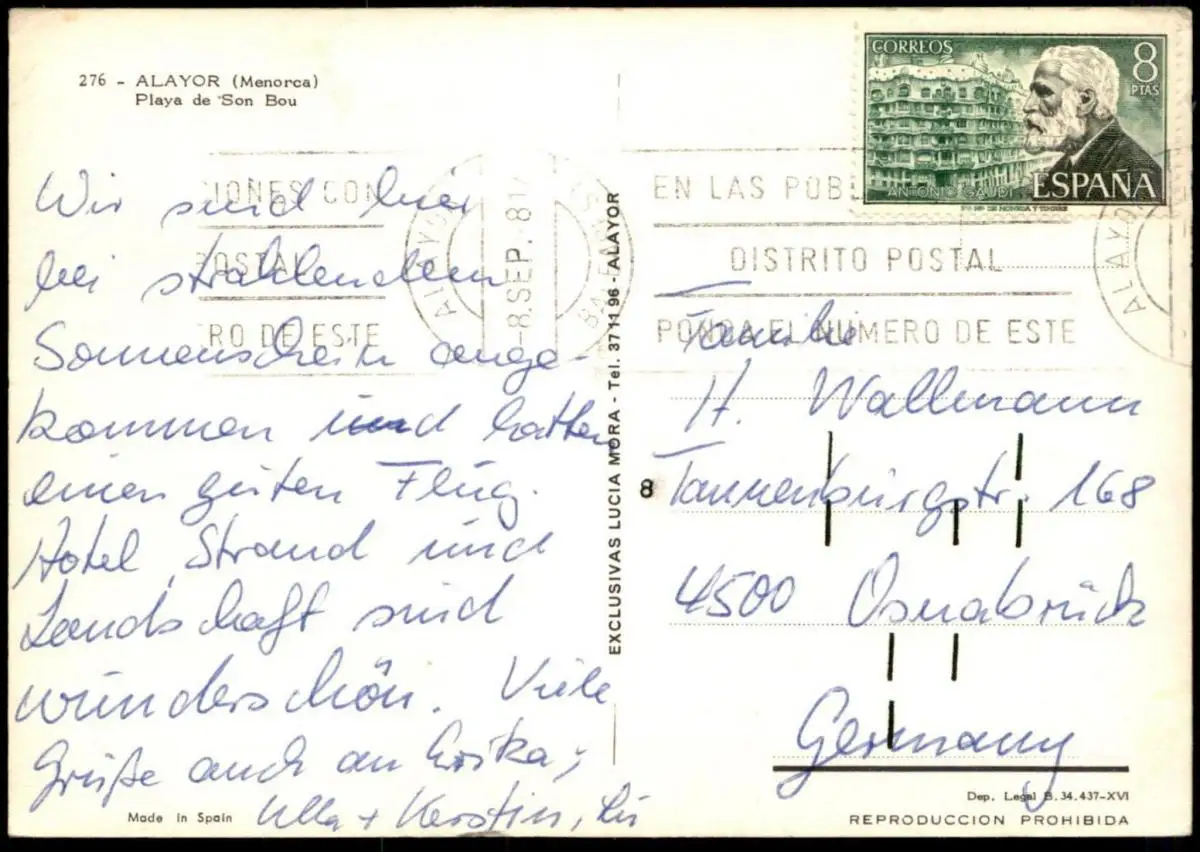 276 - ALAYOR (Menorca)
Playa de Son Bou
Wir sind hier
bei strahlendem
Sonnenschein ange-
kommen und hatten
einen guten Flug.
Hotel, Strand und
Landschaft sind
wunderschön. Viele
Grüße auch an Erika,
Ulla + Kerstin,
Made in Spain
EXCLUSIVAS LUCIA MORA - Tel. 37 11 96 - ALAYOR
CORREOS
8
PTAS
ANTONIO GAUDI
ESPAÑA
CIONES CON
POSTAL
ERO DE ESTE
ALAYOR
-8.SEP.81
BALEARES
EN LAS POB
DISTRITO POSTAL
PONGA EL NUMERO DE ESTE
ALAYO
Familie
H. Wallmann
8
Tannenburgstr. 168
4500 Osnabrück
Germany
Dep. Legal B. 34.437-XVI
REPRODUCCION PROHIBIDA